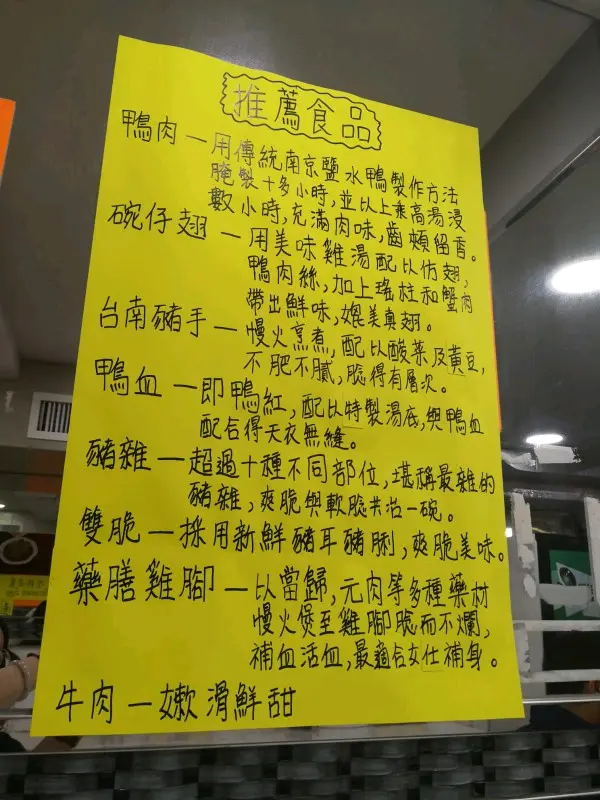 推薦食品
鴨肉 — 用傳統南京鹽水鴨製作方法
醃製十多小時，並以上乘高湯浸
數小時，充滿肉味，齒頰留香。
碗仔翅 — 用美味雞湯配以仿翅，
鴨肉絲，加上瑤柱和蟹肉
帶出鮮味，媲美真翅。
台南豬手 — 慢火烹煮，配以酸菜及黃豆，
不肥不膩，腍得有層次。
鴨血 — 即鴨紅，配以特製湯底，與鴨血
配合得天衣無縫。
豬雜 — 超過十種不同部位，堪稱最雜的
豬雜，爽脆與軟腍共冶一碗。
雙脆 — 採用新鮮豬耳豬脷，爽脆美味。
藥膳雞腳 — 以當歸，元肉等多種藥材
慢火煲至雞腳腍而不爛，
補血活血，最適合女仕補身。
牛肉 — 嫩滑鮮甜